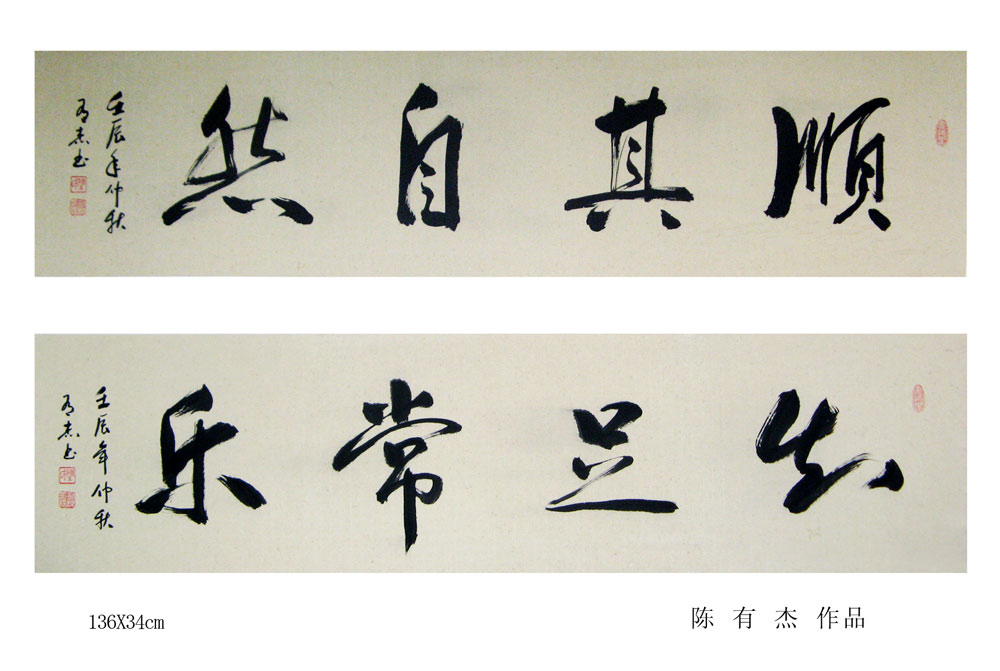 顺其自然
壬辰年仲秋
有杰书
知足常乐
壬辰年仲秋
有杰书
136X34cm
陈有杰作品